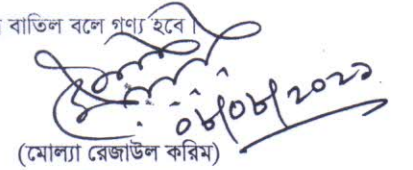 বাতিল বলে গণ্য হবে।
০৮/০৮/২০২১
(মোল্যা রেজাউল করিম)